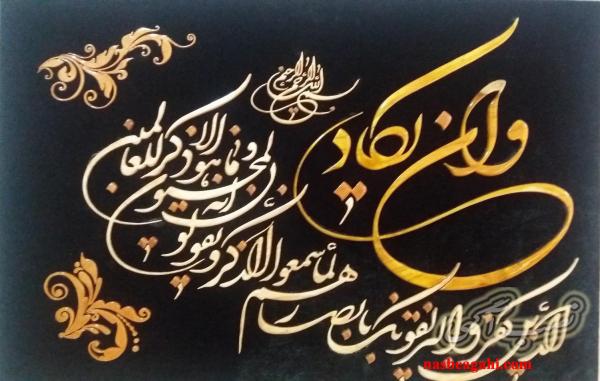 بسم الله الرحمن الرحیم
وان یکاد
الذین کفروا لیزلقونک بابصار
هم لما سمعوا الذکر و یقولون
انه لمجنون
و ما هو الا ذکر للعالمین
nasbeagahi.com